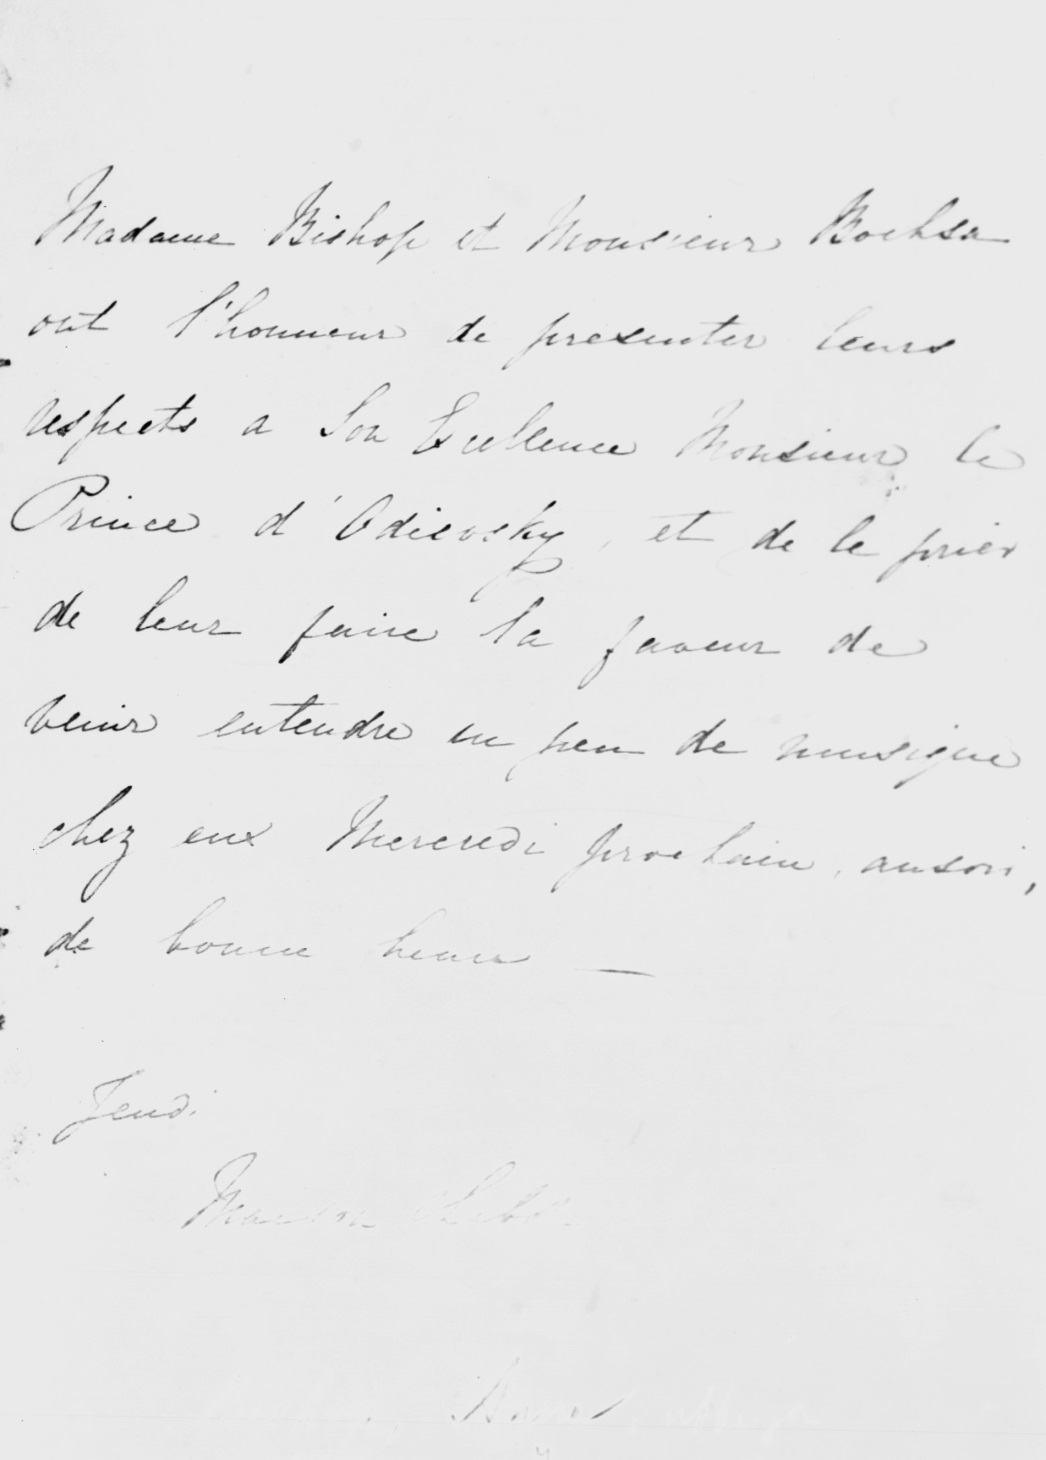 Madame Bishop et Monsieur Bochsa
ont l'honneur de presenter leurs
respects a Son Excellence Monsieur le
Prince d'Odievsky, et de le prier
de leur faire la faveur de
venir entendre un peu de musique
chez eux Mercredi prochain, au soir,
de bonne heure —
Jeudi
Maison